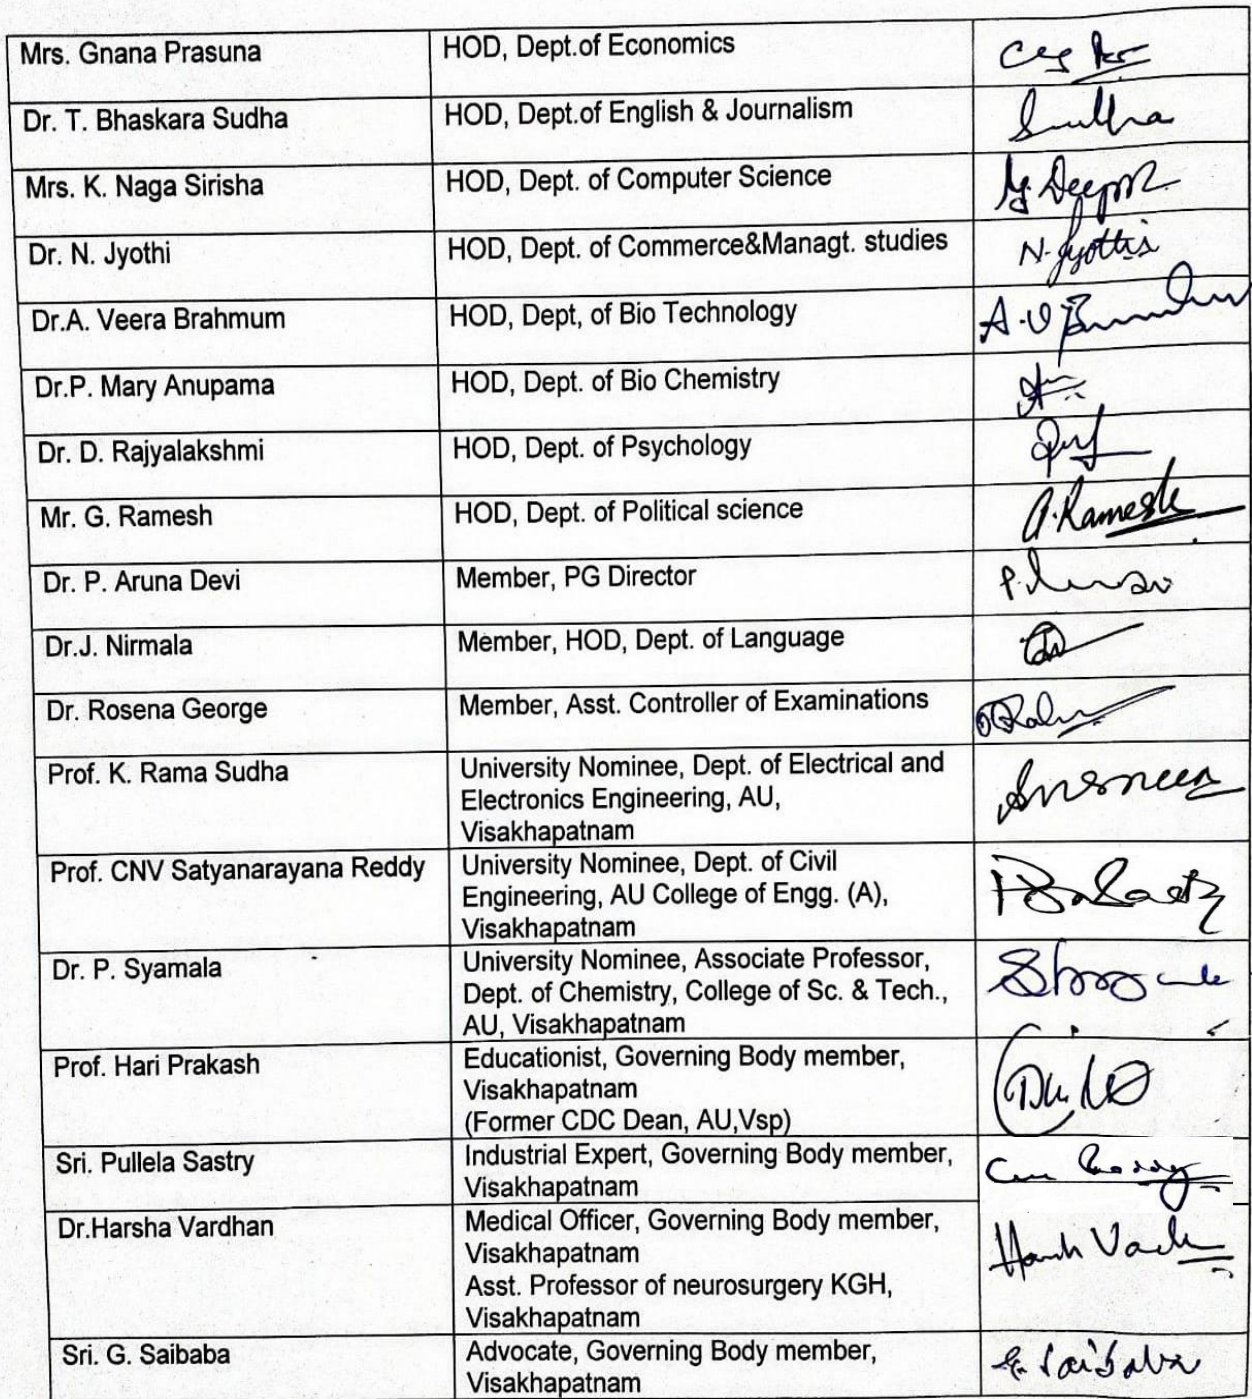 Mrs. Gnana Prasuna
HOD, Dept.of Economics
Dr. T. Bhaskara Sudha
HOD, Dept.of English & Journalism
Sudha
Mrs. K. Naga Sirisha
HOD, Dept. of Computer Science
Dr. N. Jyothi
HOD, Dept. of Commerce&Managt. studies
N. Jyothi
Dr.A. Veera Brahmum
HOD, Dept, of Bio Technology
Dr.P. Mary Anupama
HOD, Dept. of Bio Chemistry
Dr. D. Rajyalakshmi
HOD, Dept. of Psychology
Mr. G. Ramesh
HOD, Dept. of Political science
G. Ramesh
Dr. P. Aruna Devi
Member, PG Director
Dr.J. Nirmala
Member, HOD, Dept. of Language
Dr. Rosena George
Member, Asst. Controller of Examinations
Prof. K. Rama Sudha
University Nominee, Dept. of Electrical and
Electronics Engineering, AU,
Visakhapatnam
Prof. CNV Satyanarayana Reddy
University Nominee, Dept. of Civil
Engineering, AU College of Engg. (A),
Visakhapatnam
Dr. P. Syamala
University Nominee, Associate Professor,
Dept. of Chemistry, College of Sc. & Tech.,
AU, Visakhapatnam
Prof. Hari Prakash
Educationist, Governing Body member,
Visakhapatnam
(Former CDC Dean, AU,Vsp)
Sri. Pullela Sastry
Industrial Expert, Governing Body member,
Visakhapatnam
Dr.Harsha Vardhan
Medical Officer, Governing Body member,
Visakhapatnam
Asst. Professor of neurosurgery KGH,
Visakhapatnam
Sri. G. Saibaba
Advocate, Governing Body member,
Visakhapatnam
G. Saibaba